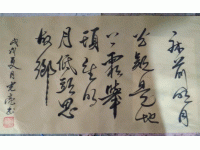 床前明月
光疑是地
上霜举
头望明
月低头思
故乡
戊戌夏月